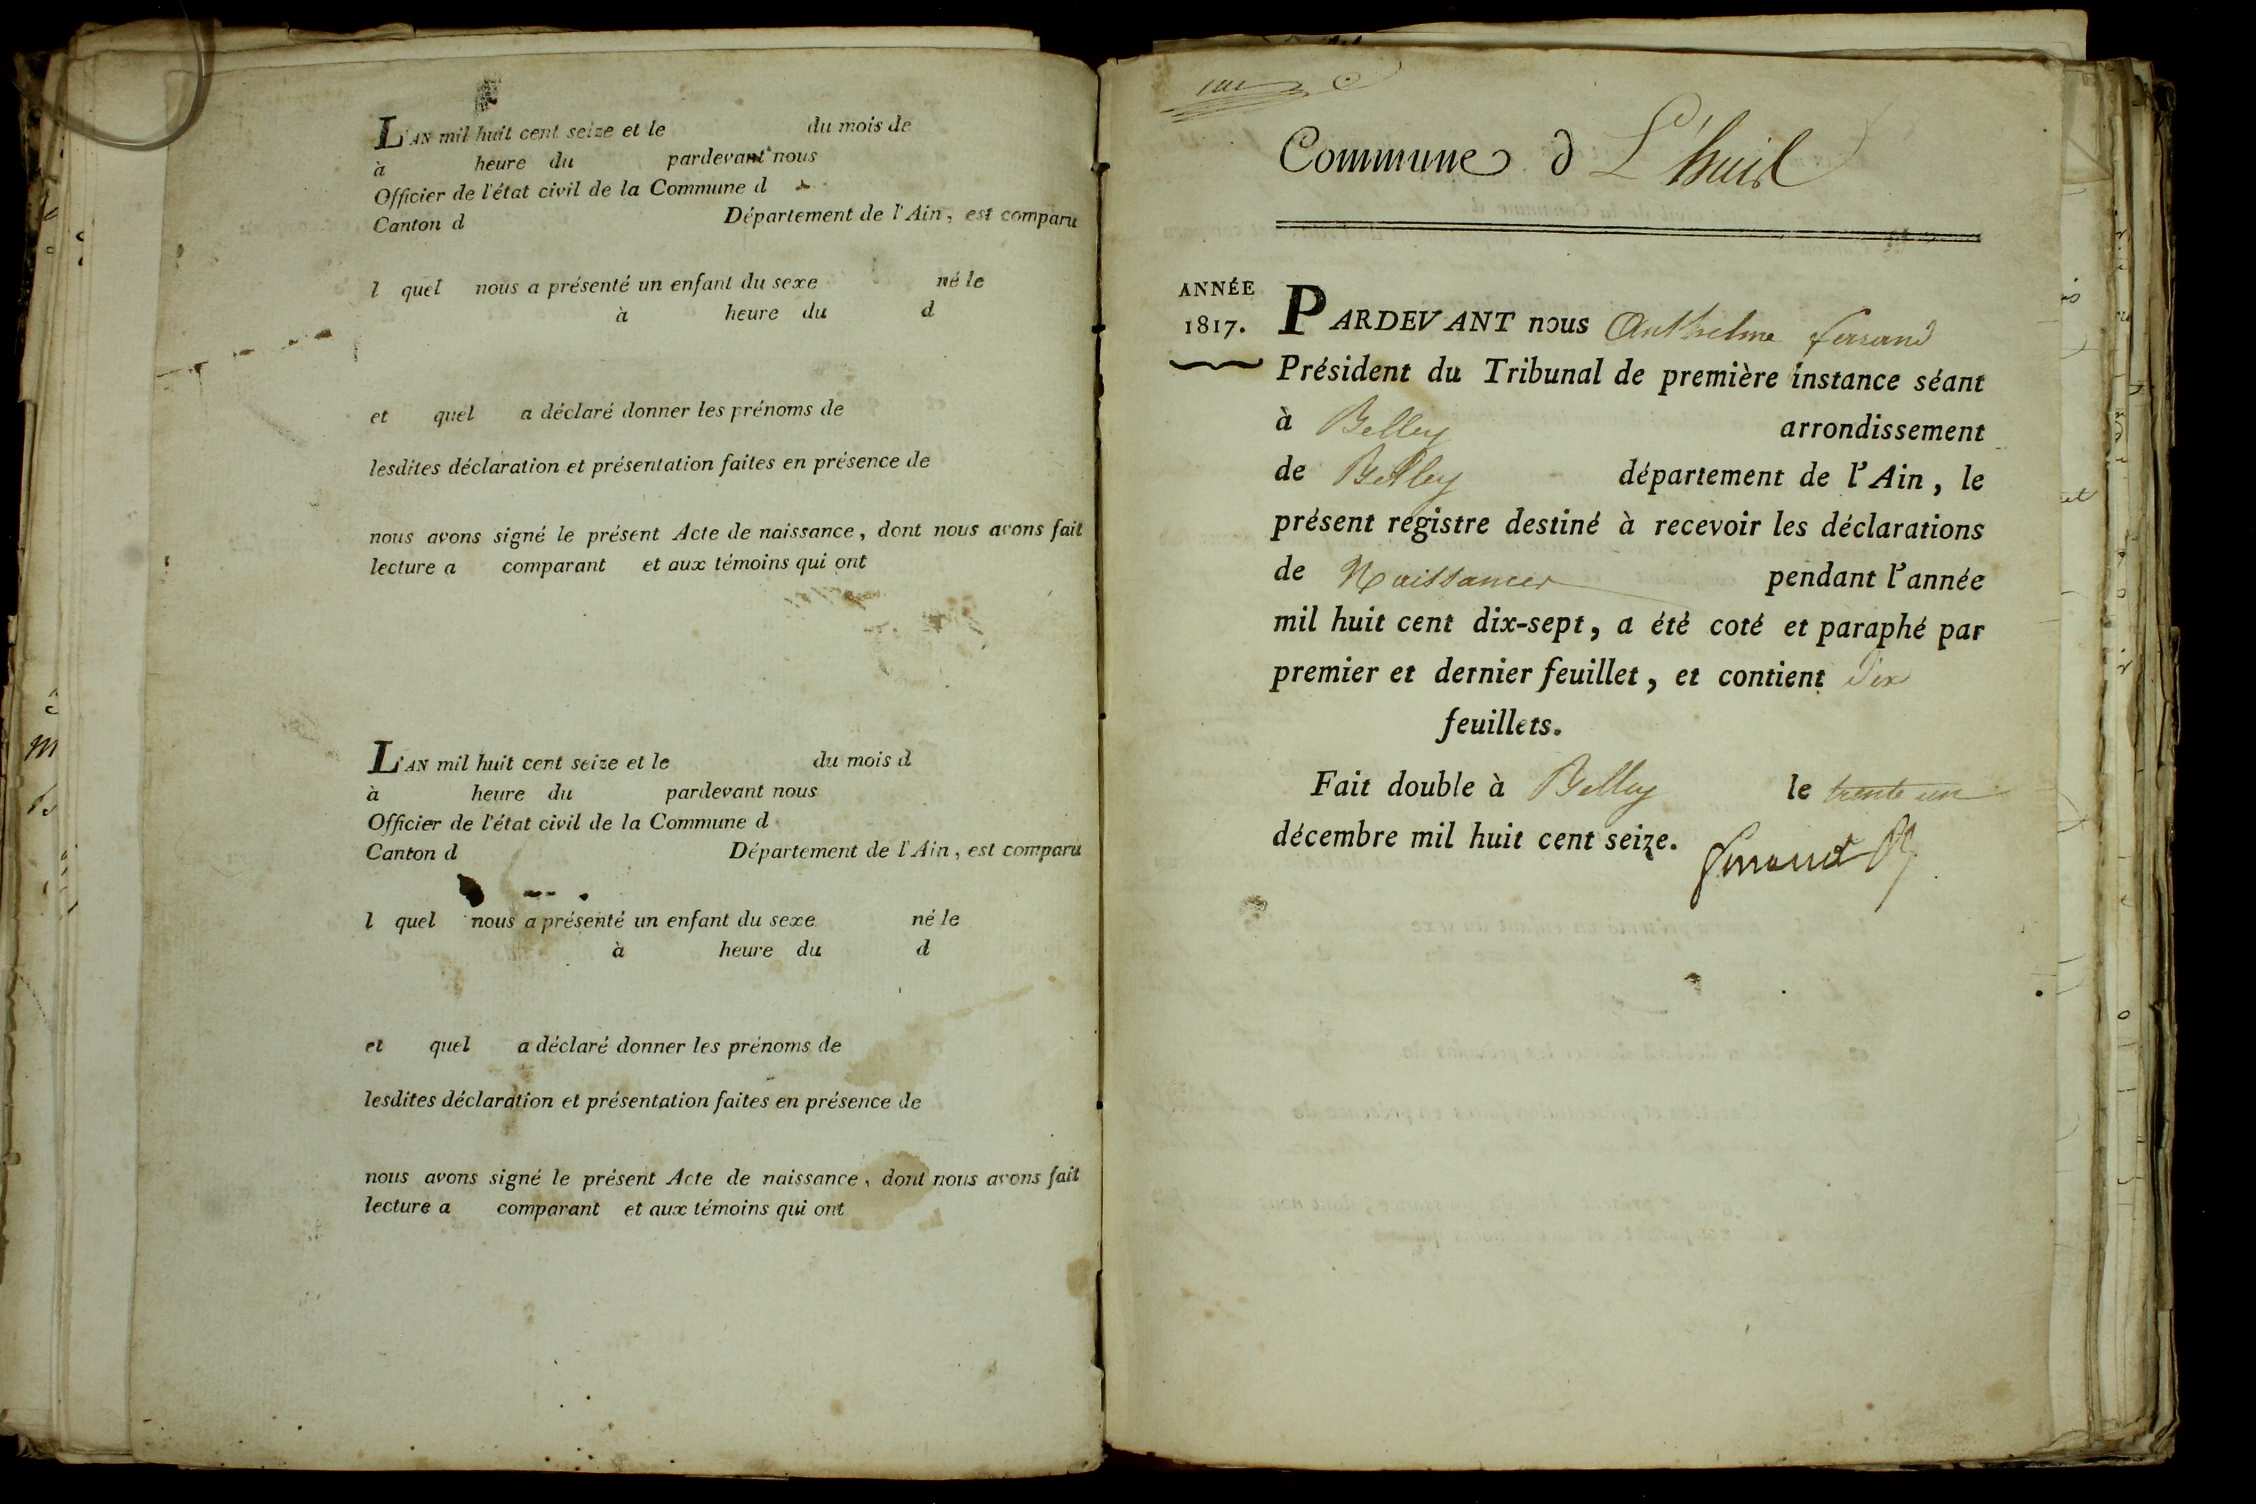 L'AN mil huit cent seize et le du mois de
à heure du pardevant nous
Officier de l'état civil de la Commune d
Canton d Département de l'Ain, est comparu
l quel nous a présenté un enfant du sexe né le
à heure du d
et quel a déclaré donner les prénoms de
lesdites déclaration et présentation faites en présence de
nous avons signé le présent Acte de naissance, dont nous avons fait
lecture a comparant et aux témoins qui ont
L'AN mil huit cent seize et le du mois d
à heure du pardevant nous
Officier de l'état civil de la Commune d
Canton d Département de l'Ain, est comparu
l quel nous a présenté un enfant du sexe né le
à heure du d
et quel a déclaré donner les prénoms de
lesdites déclaration et présentation faites en présence de
nous avons signé le présent Acte de naissance, dont nous avons fait
lecture a comparant et aux témoins qui ont
Commune d L'huis
ANNÉE
1817.
PARDEVANT nous Anthelme ferrand
Président du Tribunal de première instance séant
à Belley arrondissement
de Belley département de l'Ain, le
présent registre destiné à recevoir les déclarations
de Naissances pendant l'année
mil huit cent dix-sept, a été coté et paraphé par
premier et dernier feuillet, et contient dix
feuillets.
Fait double à Belley le trente un
décembre mil huit cent seize.
ferrand